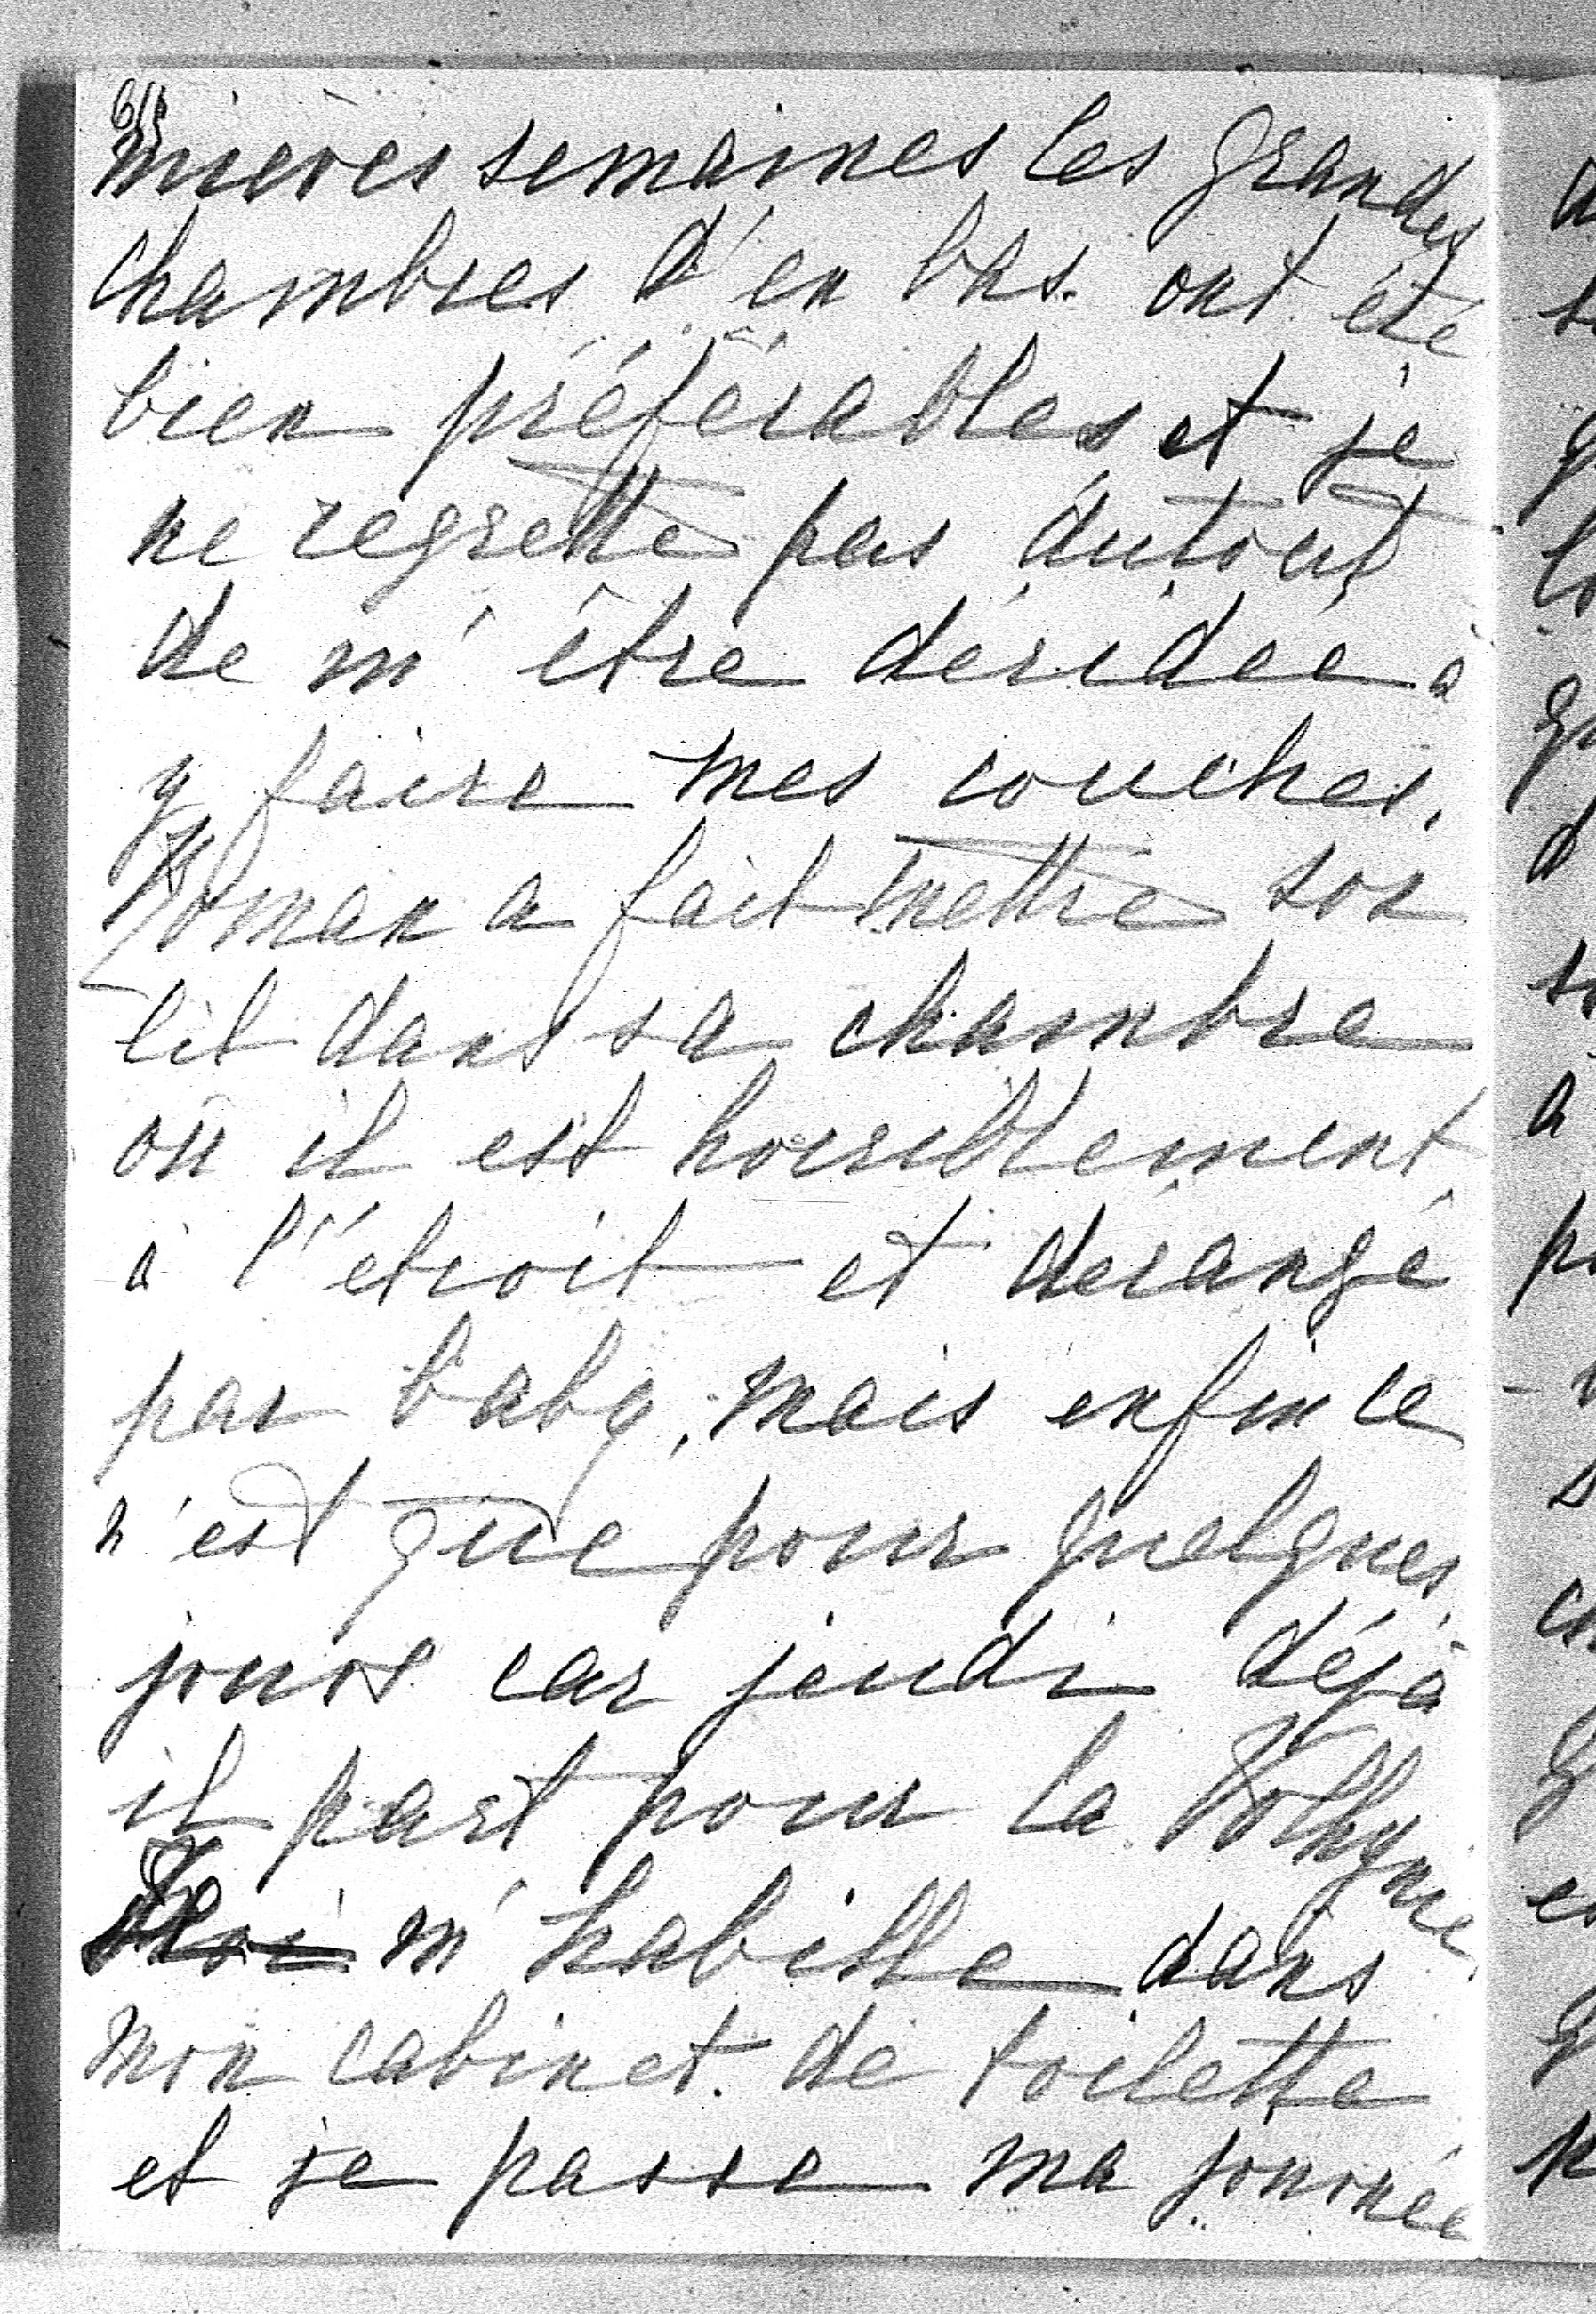 mières semaines les grandes
chambres d'en bas ont été
bien préférables et je
ne regrette pas dutout
de m'être décidée à
y faire mes couches.
Roman a fait mettre son
lit dans sa chambre
où il est horriblement
à l'étroit et dérangé
par baby, mais enfin ce
n'est que pour quelques
jours car jeudi déjà
il part pour la Volhynie
Je m'habille dans
mon cabinet de toilette
et je passe ma journée